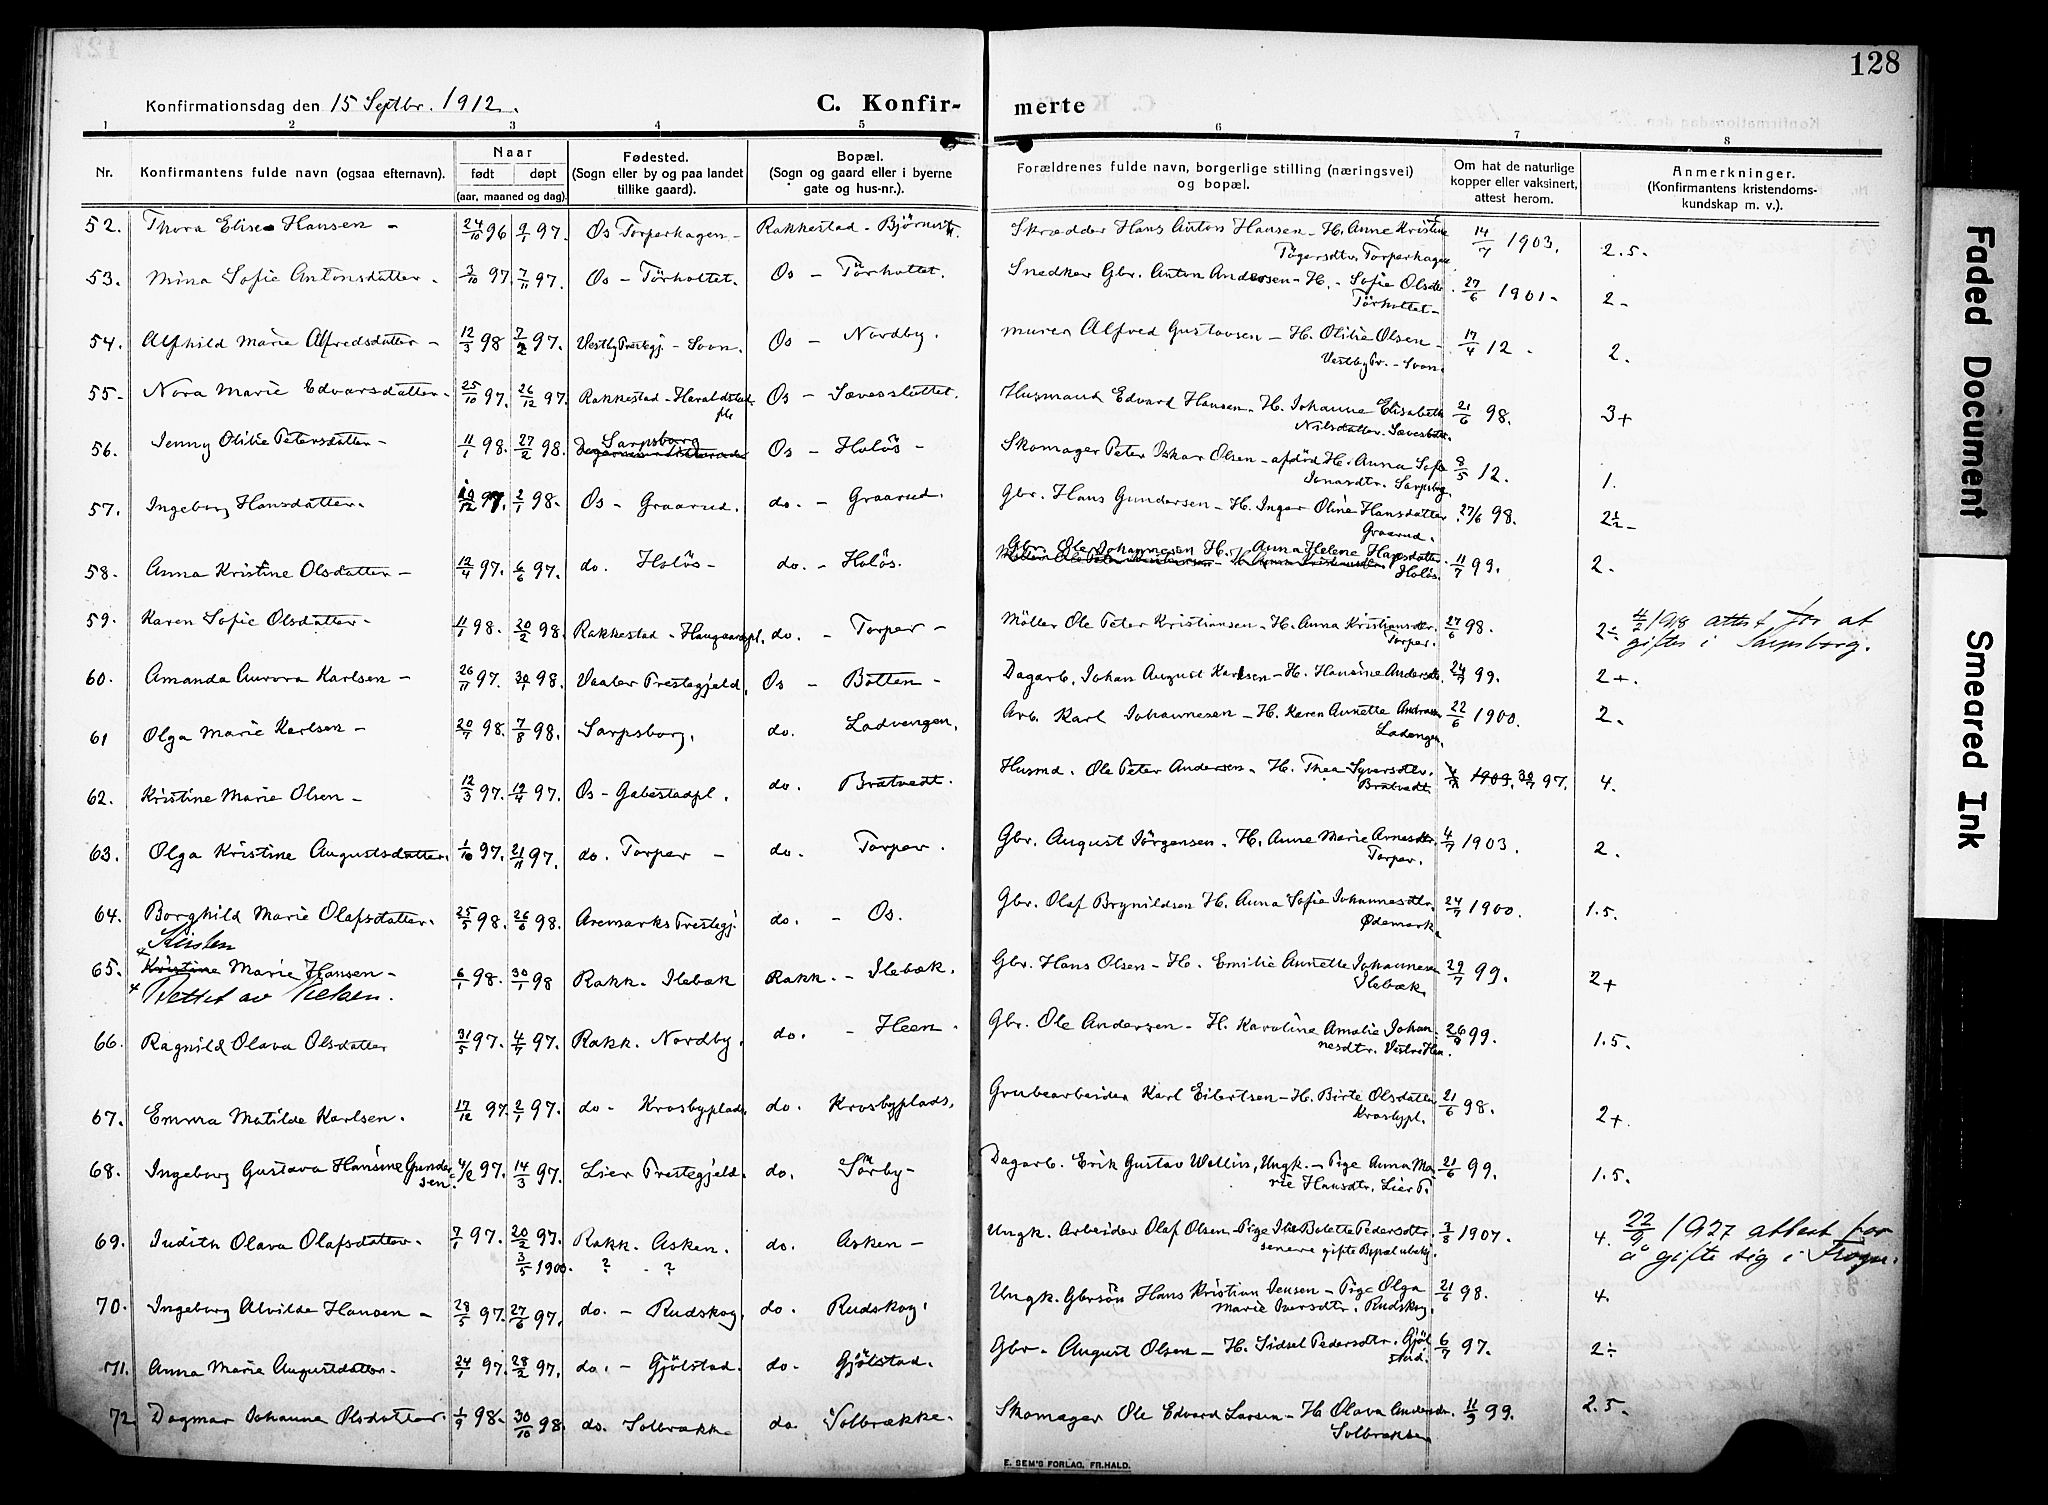 128
Konfirmationsdag den 15 Septbr. 1912.
C. Konfir-
merte
1 2 3 4 5 6 7 8
Nr. Konfirmantens fulde navn (ogsaa efternavn). Naar født døpt (aar, maaned og dag). Fødested. (Sogn eller by og paa landet tillike gaard). Bopæl. (Sogn og gaard eller i byerne gate og hus-nr.). Forældrenes fulde navn, borgerlige stilling (næringsvei) og bopæl. Om hat de naturlige kopper eller vaksinert, attest herom. Anmerkninger. (Konfirmantens kristendoms-kundskap m. v.).
52. Thora Elise Hansen - 24/10 96 97. Os Torperhagen - Rakkestad - Skrædder Hans Anton Hansen - H. Anne Kristine 14/7 1903. 2.5.
Torperhagen
53. Mina Sofie Antonsdatter. 3/10 97. 7/11 97. Os - Törholtet. Os - Törholtet. Snedker Gbr. Anton Andersen - H. - Sofie Olsdtr. 27/6 1901 - 2 -
Törholtet -
54. Alfhild Marie Alfredsdatter - 12/3 98 97. Vestby Prestegj - Soon. Os - Nordby. Murer Alfred Gustavsen - H. Otilie Olsen - 17/4 12 - 2.
Vestby Pr. - Soon.
55 - Nora Marie Edvarsdatter - 25/10 97. 26/12 97. Rakkestad - Haraldstad Os - Husmand Edvard Hansen - H. Johanne Elisabeth 21/6 98. 3+
Nilsdatter.
56. Jenny Otilie Petersdatter - 11/1 98. 27/2 98. Sarpsborg Os - Holös - Skomager Peter Oskar Olsen - afdöd H. Anna Sofie 8/5 12. 1.
Sarpsbg.
57. Ingeborg Hansdatter. 97. 2/1 98. Os - Graarud. do. - Graarud. Gbr. Hans Gundersen - H. Inger Oline Hansdatter 27/6 98. 2½ -
Graarud.
58. Anna Kristine Olsdatter - 12/4 97. 6/6 97. do. Holös - do. - Holös. Gbr. Ole Johannesen H. Anna Helene Hansdatter. 11/7 99. 2.
Holös.
59. Karen Sofie Olsdatter - 11/1 98. 20/2 98. Rakkestad - Haugaardspl. do. - Torper - Möller Ole Peter Kristiansen - H. Anna Kristiansdtr. 27/6 98. 2÷ 1918 attest for at
Torper. giftes i Sarpsborg.
60. Amanda Aurora Karlsen - 26/11 97. 98. Vaaler Prestegjeld. Os - Botten - Dagarb. Johan August Karlsen - H. Hansine Andersdtr. 99. 2+.
61 Olga Marie Karlsen - 20/7 98. 7/8 98. Sarpsborg. do. Ladvengen. Arb. Karl Johannesen - H. Karen Annette 22/6 1900. 2.
Ladengen.
62. Kristine Marie Olsen - 12/3 97. 19/4 97. Os - Gabestadpl. do. Bratvedt. Husmd. Ole Peter Andersen - H. Thea Syversdtr. 1909. 97. 4.
Bratvedt
63. Olga Kristine Augustsdatter. 1/10 97. 21/11 97. do. Torper - do. Torper. Gbr. August Jörgensen. H. Anne Marie Arnesdtr. 4/7 1903. 2.
Torper.
64. Borghild Marie Olafsdatter. 25/5 98. 26/6 98. Aremarks Prestegj. do. - Os. Gbr. Olaf Brynildsen H. Anna Sofie Johannesdtr. 24/7 1900. 1.5.
Ødemark.
Kirsten
65. Kristine Marie Hansen - 6/1 98. 30/1 98 Rakk. Ilebæk Rakk. - Ilebæk. Gbr. Hans Olsen - H. Emilie Annette Johannesen 29/7 99. 2+
Rettet av Nielsen. Ilebæk.
66. Ragnild Olava Olsdatter 31/5 97. 4/7 97. Rakk. Nordby. do. - Heen. Gbr. Ole Andersen - H. Karoline Amalie Johan 99. 1.5.
nesdtr. Vestre Hen.
67. Emma Matilde Karlsen. 17/12 97. 2/1 97. do - Krosbyplads. do. Krosbyplads. Grubearbeider Karl Eilertsen - H. Birte Olsdatter 21/6 98. 2+.
Krosbypl.
68. Ingeborg Gustava Hansine Gunder 4/2 97. 14/3 97. Lier Prestegjeld. do. Sörby - Dagarb. Erik Gustav Wallin, Ungk. - Pige Anna Ma 21/6 99. 1.5.
sen. rie Hansdtr. Lier P.
69. Judith Olava Olafsdatter. 7/1 97. 20/2 97. Rakk. Asken. do. Asken - Ungk. Arbeider Olaf Olsen - Pige Bolette Pedersdtr. 3/8 1907. 4. 22/9 1927 attest for
3/5 1900. ? - ? senere gifte Bopæl ubekj. å gifte sig i Frogn.
70. Ingeborg Alvilde Hansen - 28/5 97. 27/6 97. do. - Rudskog. do. Rudskog. Ungk. Gbrsön Hans Kristian Jensen - Pige Olga 21/6 98. 4.
Marie Iversdtr. Rudskog.
71. Anna Marie Augustdatter - 24/1 97. 28/2 97. do. - Gjölstad. do. Gjölstad. Gbr. August Olsen - H. Sidsel Pedersdtr. Gjöl 6/7 97. 2÷
stad.
72. Dagmar Johanne Olsdatter. 1/9 98. 30/10 98. do. Solbrække do. Solbrække. Skomager Ole Edvard Larsen - H. Olava Andersdr. 99. 2.5.
Solbrække
E. SEM'S FORLAG, FR.HALD.
Faded Document
Smeared Ink